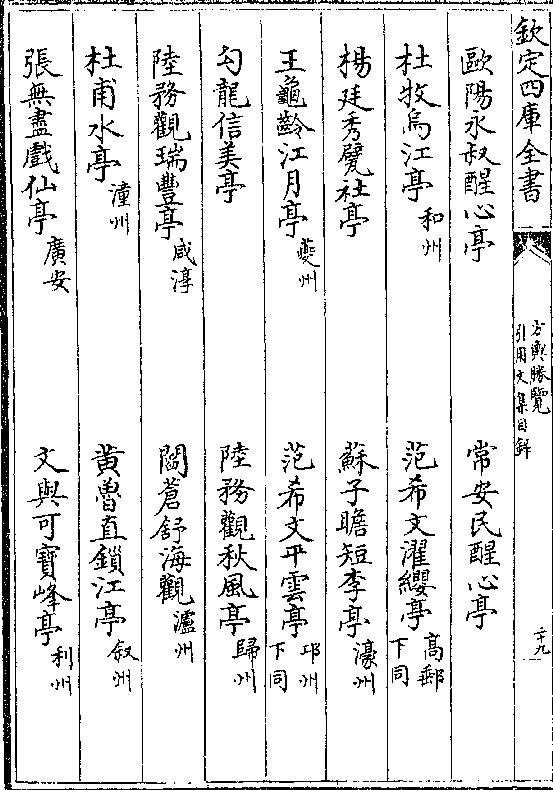 欽定四庫全書
方輿勝覽
引用文集目録
二十九
歐陽永叔醒心亭
常安民醒心亭
杜牧烏江亭 和州
范希文濯纓亭 高郵下同
楊廷秀甓社亭
蘇子瞻短李亭 濠州
王龜齡江月亭 夔州
范希文平雲亭 邛州下同
勾龍信美亭
陸務觀秋風亭 歸州
陸務觀瑞豐亭 咸淳
閻蒼舒海觀 瀘州
杜甫水亭 潼州
黄魯直鎖江亭 叙州
張無盡戲仙亭 廣安
文與可寶峰亭 利州